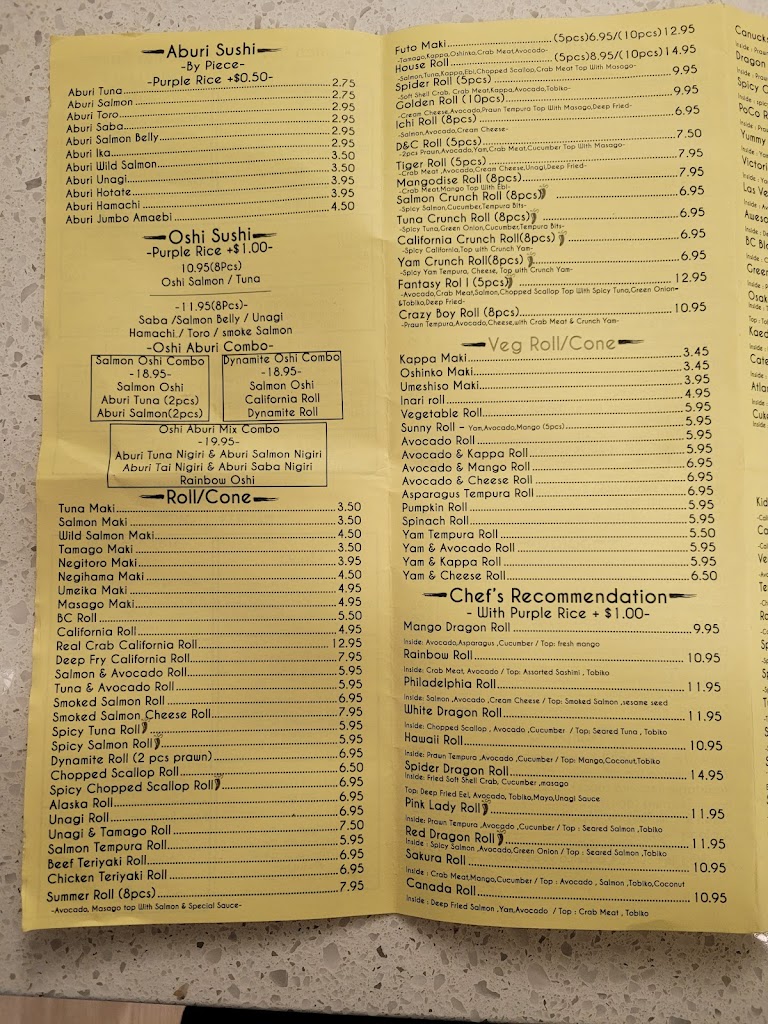 Aburi Sushi
-By Piece-
-Purple Rice +$0.50-
Aburi Tuna 2.75
Aburi Salmon 2.75
Aburi Toro 2.95
Aburi Saba 2.95
Aburi Salmon Belly 2.95
Aburi Ika 2.95
Aburi Wild Salmon 3.50
Aburi Unagi 3.50
Aburi Hotate 3.95
Aburi Hamachi 3.95
Aburi Jumbo Amaebi 4.50
Oshi Sushi
-Purple Rice +$1.00-
10.95(8Pcs)
Oshi Salmon / Tuna
-11.95(8Pcs)-
Saba /Salmon Belly / Unagi
Hamachi / Toro / smoke Salmon
-Oshi Aburi Combo-
Salmon Oshi Combo
-18.95-
Salmon Oshi
Aburi Tuna (2pcs)
Aburi Salmon(2pcs)
Dynamite Oshi Combo
-18.95-
Salmon Oshi
California Roll
Dynamite Roll
Oshi Aburi Mix Combo
-19.95-
Aburi Tuna Nigiri & Aburi Salmon Nigiri
Aburi Tai Nigiri & Aburi Saba Nigiri
Rainbow Oshi
Roll/Cone
Tuna Maki 3.50
Salmon Maki 3.50
Wild Salmon Maki 4.50
Tamago Maki 3.50
Negitoro Maki 3.95
Negihama Maki 4.50
Umeika Maki 4.95
Masago Maki 4.95
BC Roll 5.50
California Roll 4.95
Real Crab California Roll 12.95
Deep Fry California Roll 7.95
Salmon & Avocado Roll 5.95
Tuna & Avocado Roll 5.95
Smoked Salmon Roll 6.95
Smoked Salmon Cheese Roll 7.95
Spicy Tuna Roll 5.95
Spicy Salmon Roll 5.95
Dynamite Roll (2 pcs prawn) 6.95
Chopped Scallop Roll 6.50
Spicy Chopped Scallop Roll 6.95
Alaska Roll 6.95
Unagi Roll 6.95
Unagi & Tamago Roll 7.50
Salmon Tempura Roll 5.95
Beef Teriyaki Roll 6.95
Chicken Teriyaki Roll 6.95
Summer Roll (8pcs) 7.95
-Avocado, Masago top With Salmon & Special Sauce-
Futo Maki (5pcs)6.95/(10pcs)12.95
-Tamago,Kappa,Oshinko,Crab Meat,Avocado-
House Roll (5pcs)8.95/(10pcs)14.95
-Salmon,Tuna,Kappa,Ebi,Chopped Scallop,Crab Meat Top With Masago-
Spider Roll (5pcs) 9.95
-Soft Shell Crab, Crab Meat,Kappa,Avocado,Tobiko-
Golden Roll (10pcs) 9.95
-Cream Cheese,Avocado,Praun Tempura Top With Masago,Deep Fried-
Ichi Roll (8pcs) 6.95
-Salmon,Avocado,Cream Cheese-
D&C Roll (5pcs) 7.50
-2pcs Praun,Avocado,Yam,Crab Meat,Cucumber Top With Masago-
Tiger Roll (5pcs) 7.95
-Crab Meat ,Avocado,Cream Cheese,Unagi,Deep Fried-
Mangodise Roll (8pcs) 7.95
-Crab Meat,Mango Top With Ebi-
Salmon Crunch Roll (8pcs) 6.95
-Spicy Salmon,Cucumber,Tempura Bits-
Tuna Crunch Roll (8pcs) 6.95
-Spicy Tuna,Green Onion,Cucumber,Tempura Bits-
California Crunch Roll(8pcs) 6.95
-Spicy California,Top with Crunch Yam-
Yam Crunch Roll(8pcs) 6.95
-Spicy Yam Tempura, Cheese, Top with Crunch Yam-
Fantasy Rol l (5pcs) 12.95
-Avocado,Crab Meat,Salmon,Chopped Scallop Top With Spicy Tuna,Green Onion
&Tobiko,Deep Fried-
Crazy Boy Roll (8pcs) 10.95
-Praun Tempura,Avocado,Cheese,with Crab Meat & Crunch Yam-
Veg Roll/Cone
Kappa Maki 3.45
Oshinko Maki 3.45
Umeshiso Maki 3.95
Inari roll 4.95
Vegetable Roll 5.95
Sunny Roll – Yam,Avocado,Mango (5pcs) 5.95
Avocado Roll 5.95
Avocado & Kappa Roll 5.95
Avocado & Mango Roll 6.95
Avocado & Cheese Roll 6.95
Asparagus Tempura Roll 6.95
Pumpkin Roll 5.95
Spinach Roll 5.95
Yam Tempura Roll 5.50
Yam & Avocado Roll 5.95
Yam & Kappa Roll 5.95
Yam & Cheese Roll 6.50
Chef's Recommendation
- With Purple Rice + $1.00-
Mango Dragon Roll 9.95
Inside: Avocado,Asparagus ,Cucumber / Top: fresh mango
Rainbow Roll 10.95
Inside: Crab Meat, Avocado / Top: Assorted Sashimi , Tobiko
Philadelphia Roll 11.95
Inside: Salmon ,Avocado ,Cream Cheese / Top: Smoked Salmon ,sesame seed
White Dragon Roll 11.95
Inside: Chopped Scallop , Avocado ,Cucumber / Top: Seared Tuna , Tobiko
Hawaii Roll 10.95
Inside: Praun Tempura ,Avocado ,Cucumber / Top: Mango,Coconut,Tobiko
Spider Dragon Roll 14.95
Inside: Fried Soft Shell Crab, Cucumber ,masago
Top: Deep Fried Eel, Avocado, Tobiko,Mayo,Unagi Sauce
Pink Lady Roll 11.95
Inside: Prawn Tempura ,Avocado ,Cucumber / Top : Seared Salmon ,Tobiko
Red Dragon Roll 11.95
Inside : Spicy Salmon ,Avocado,Green Onion / Top : Seared Salmon ,Tobiko
Sakura Roll 10.95
Inside : Crab Meat,Mango,Cucumber / Top : Avocado , Salmon ,Tobiko,Coconut
Canada Roll 10.95
Inside : Deep Fried Salmon ,Yam,Avocado / Top : Crab Meat , Tobiko
Canucks
Dragon
Spicy
PoCo R
Yummy
Victori
Las Ve
BC
Green